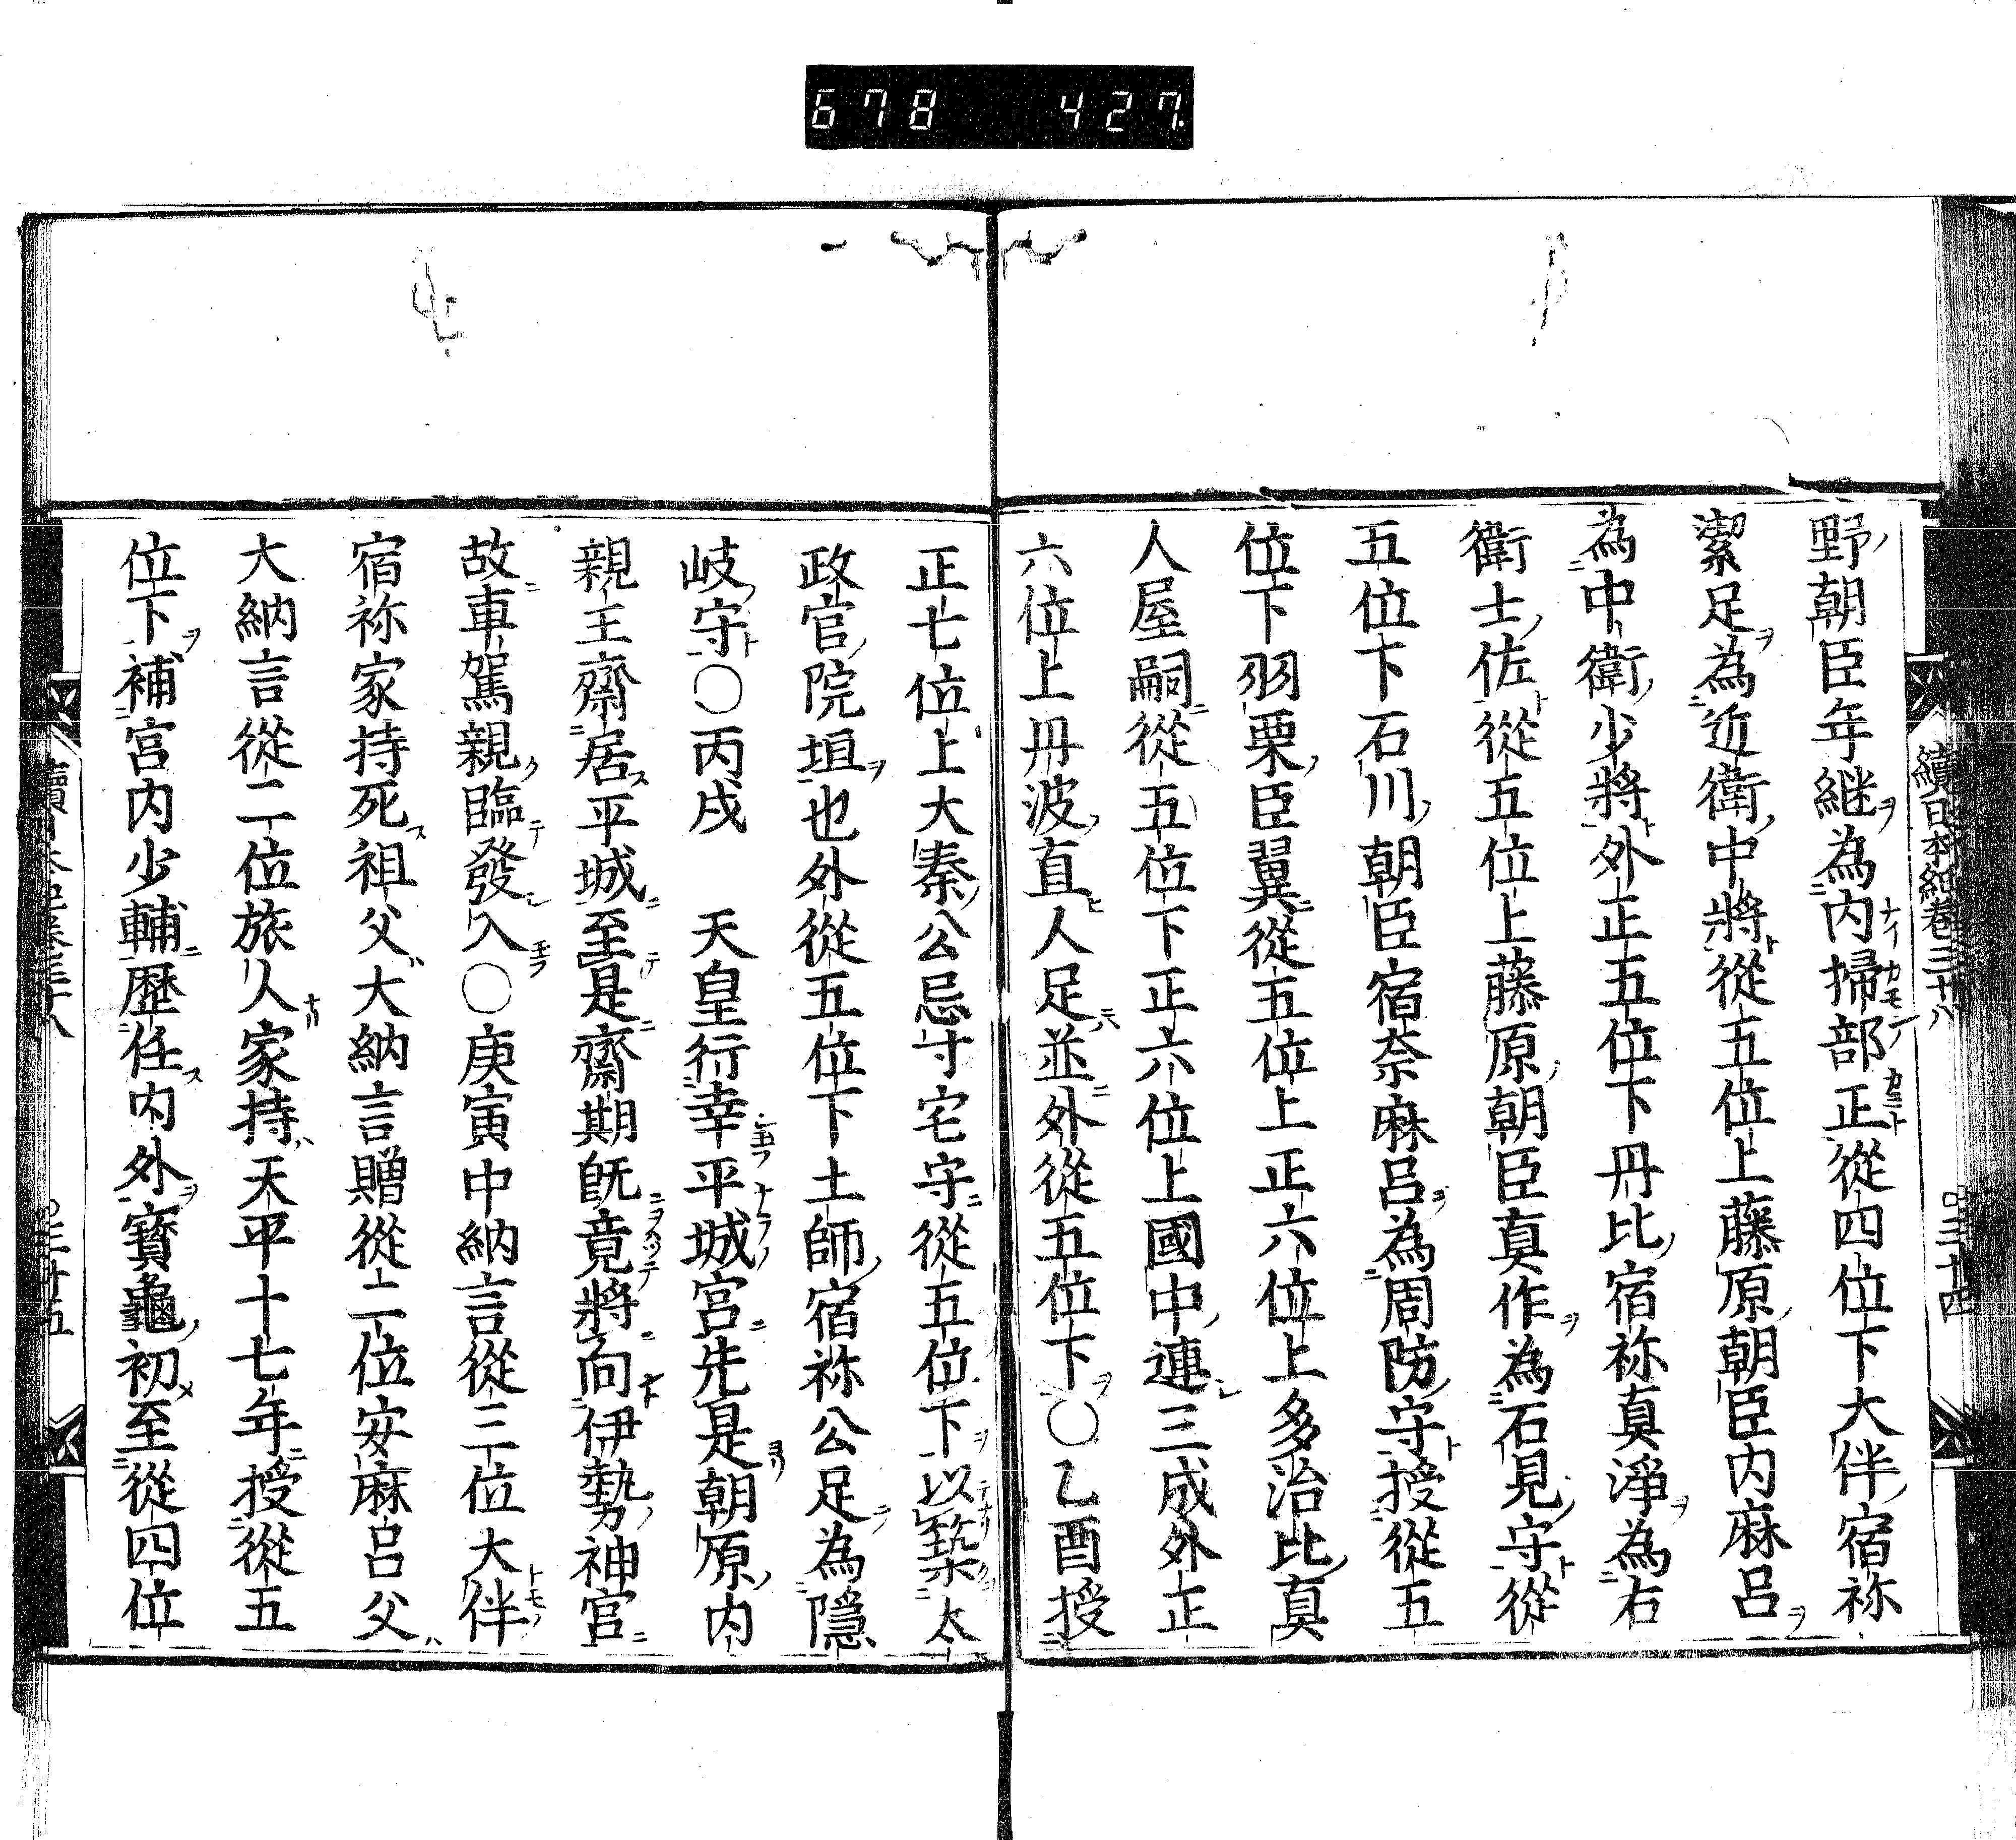 678 427.
續日本紀卷三十八
三十四
野朝臣年継為内掃部正從四位下大伴宿祢
潔足為近衛中將從五位上藤原朝臣内麻呂
為中衛少將外正五位下丹比宿祢真淨為右
衛士佐從五位上藤原朝臣真作為石見守從
五位下石川朝臣宿奈麻呂為周防守授從五
位下羽栗臣翼從五位上正六位上多治比真
人屋嗣從五位下正六位上國中連三成外正
六位上丹波直人足並外從五位下○乙酉授
正七位上大秦公忌寸宅守從五位下以築太
政官院垣也外從五位下土師宿祢公足為隱
岐守○丙戌　天皇行幸平城宮先是朝原内
親王齋居平城至是齋期既竟將向伊勢神宮
故車駕親臨發入○庚寅中納言從三位大伴
宿祢家持死祖父大納言贈從二位安麻呂父
大納言從二位旅人家持天平十七年授從五
位下補宮内少輔歷任内外寶龜初至從四位
三十五